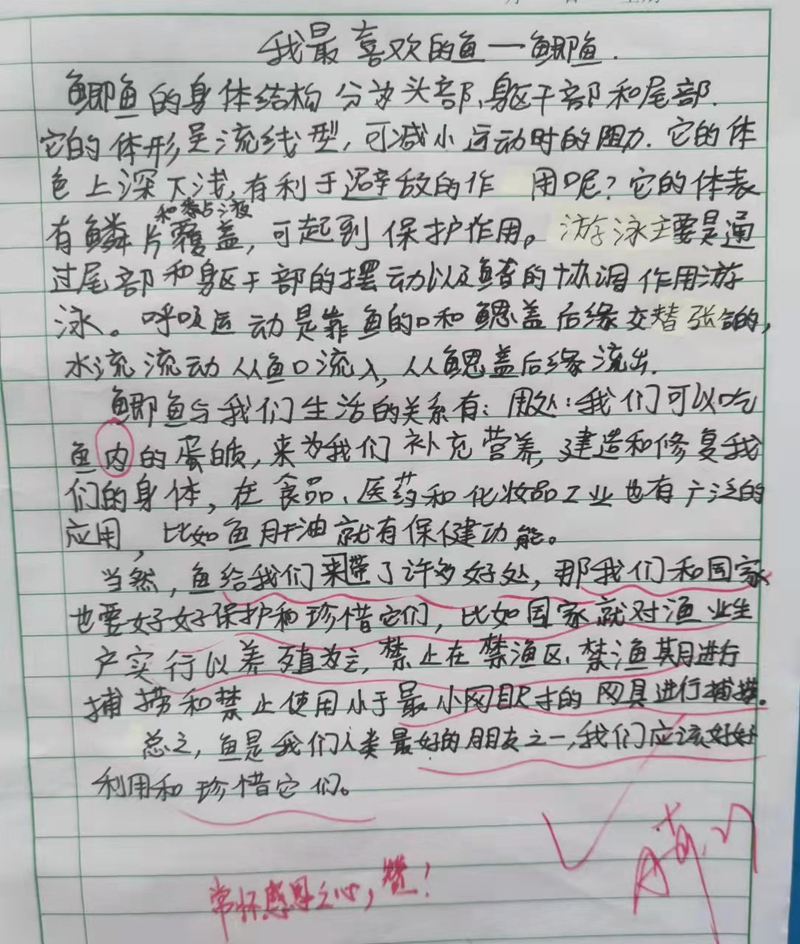 我最喜欢的鱼—鲫鱼.
鲫鱼的身体结构分为头部、躯干部和尾部.
它的体形是流线型,可减小运动时的阻力.它的体
色上深下浅,有利于避敌的作用呢?它的体表
和黏液
有鳞片覆盖,可起到保护作用。游泳主要是通
过尾部和躯干部的摆动以及鳍的协调作用游
泳。呼吸运动是靠鱼的口和鳃盖后缘交替张合的,
水流流动从鱼口流入,从鳃盖后缘流出.
鲫鱼与我们生活的关系有:用处:我们可以吃
鱼肉的蛋白质,来为我们补充营养,建造和修复我
们的身体,在食品、医药和化妆品工业也有广泛的
应用,比如鱼肝油就有保健功能。
当然,鱼给我们来带了许多好处,那我们和国家
也要好好保护和珍惜它们,比如国家就对渔业生
产实行以养殖为主,禁止在禁渔区、禁渔期进行
捕捞和禁止使用小于最小网目尺寸的网具进行捕捞。
总之,鱼是我们人类最好的朋友之一,我们应该好好
利用和珍惜它们。
常怀感恩之心,赞!